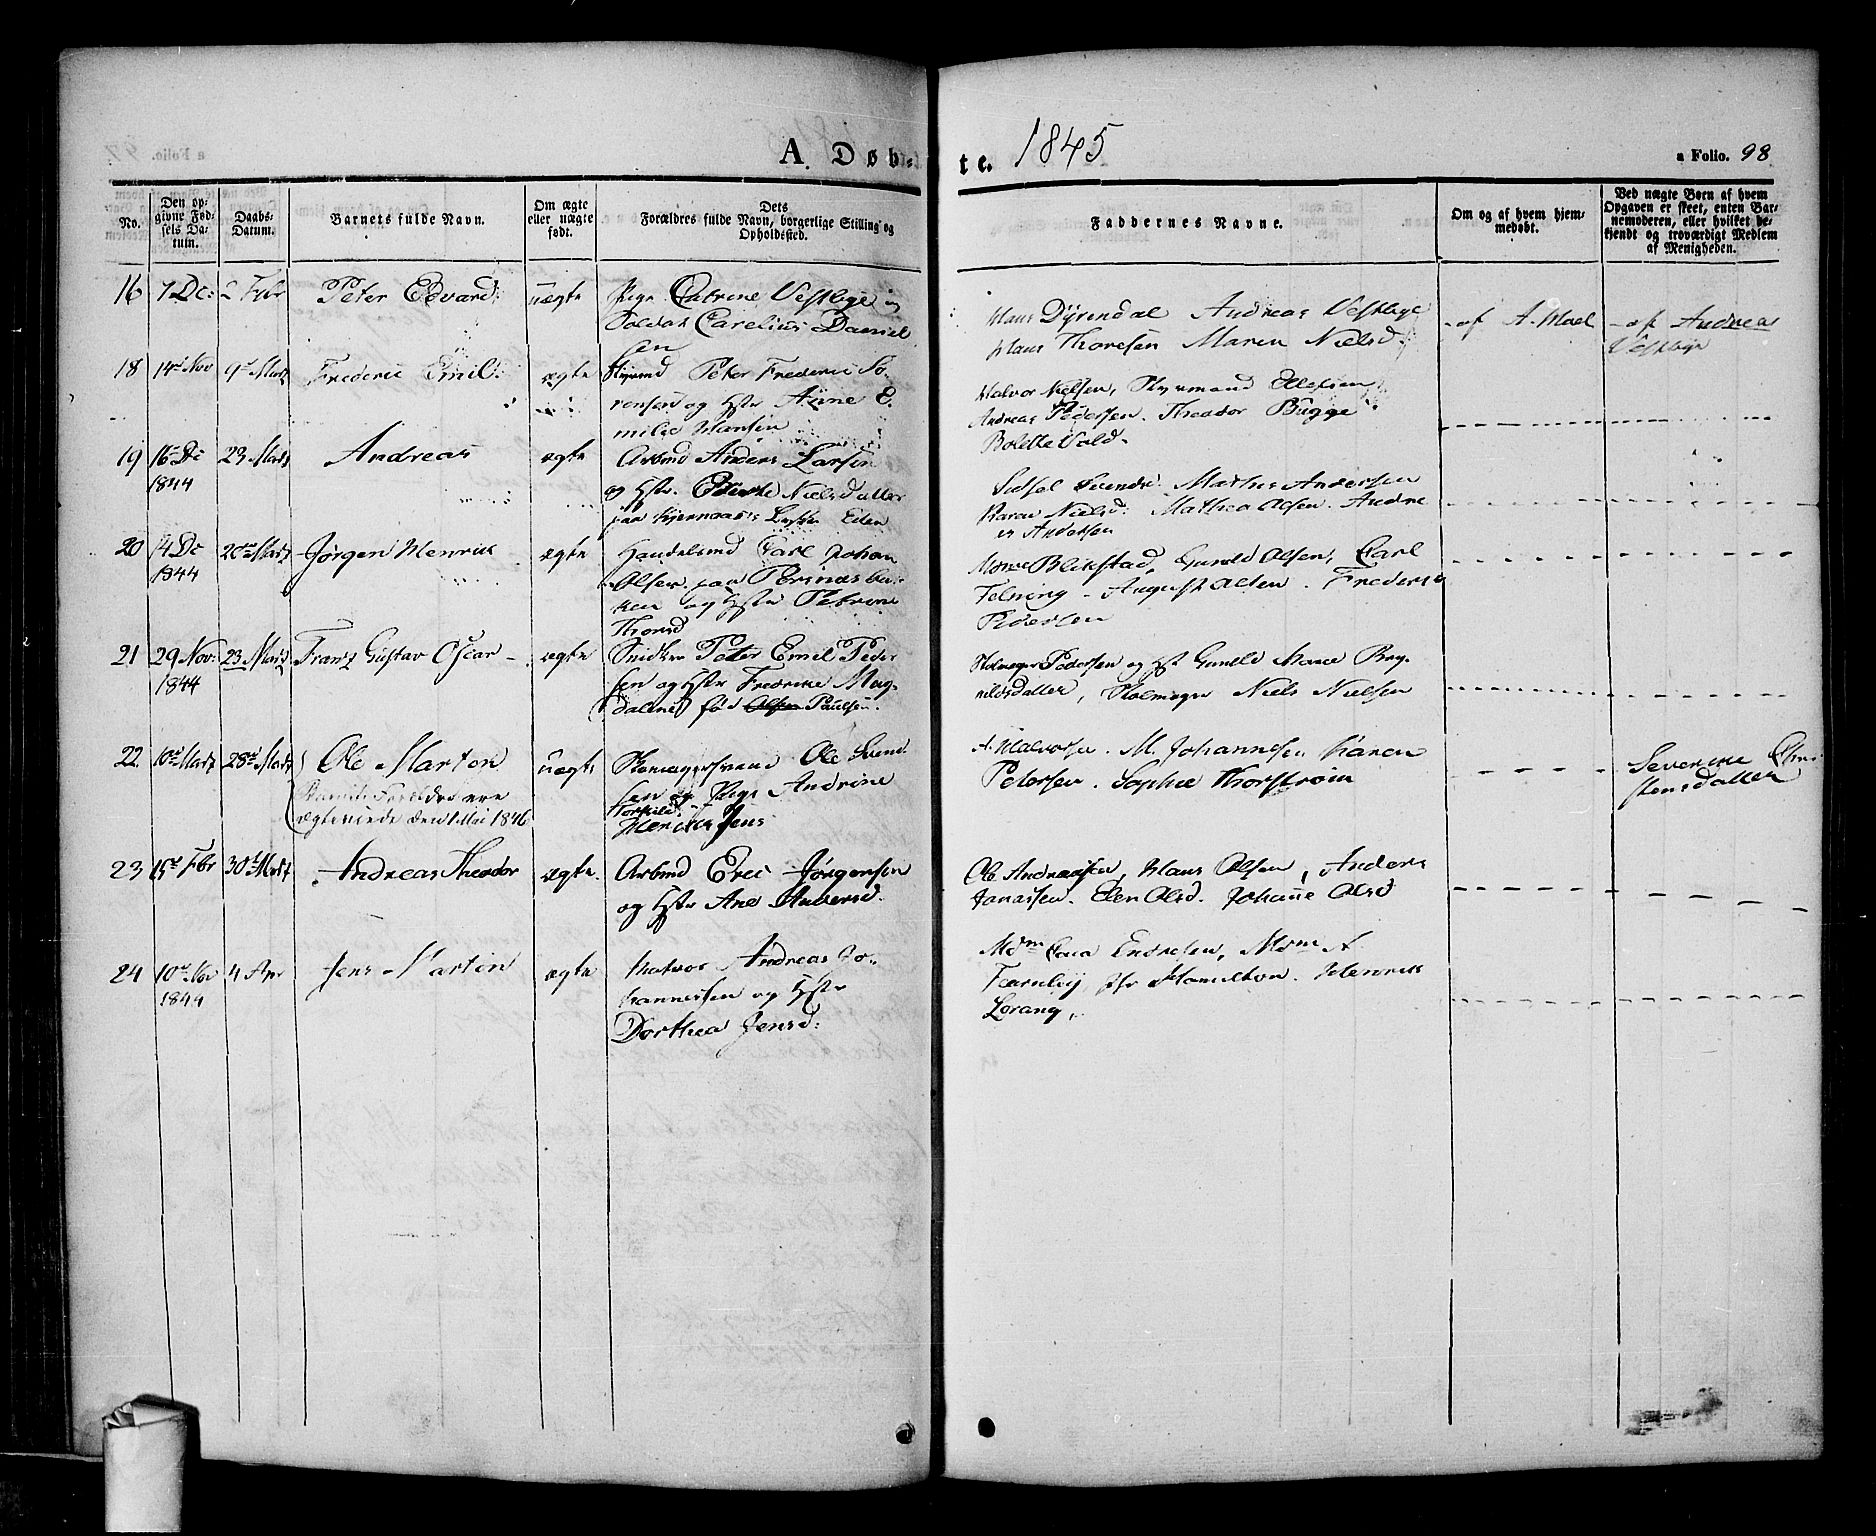 A. Døb=
te. 1845
a Folio. 98
No.
Den op-
givne Fød-
sels Da-
tum.
Daabs-
Datum.
Barnets fulde Navn.
Om ægte
eller uægte
født.
Dets
Forældres fulde Navn, borgerlige Stilling og
Opholdssted.
Faddernes Navne.
Om og af hvem hjem-
medøbt.
Ved uægte Børn af hvem
Opgaven er skeet, enten Bar-
nemoderen, eller hvilket be-
kjendt og troværdigt Medlem
af Menigheden.
16 7 Dc: 2 Fybr Peter Edvard uægte Pige Catrine Vestbye og
Soldat Carelius Daniel
sen
Hans Dyrendal Andreas Vestbye
Hans Thoresen Maren Nielsd.
- af A. Moel - af Andreas
Vestbye
18 14de Nov 9de Martz Frederic Emil. ægte Styrmd Peter Frederic Sø-
rensen og Hstr Anne E-
milie Hansen
Halvor Nielsen, Styrmand Ellefsen
Andreas Pedersen. Theodor Bugge
Bolette Vold.
19 16 Dc 23 Martz Andreas ægte Arbmd Anders Larsen
1844
og Hstr. Nielsdatter
paa Eden
Svends. Mathis Andersen
Karen Nielsd: Mathea Olsen. Andre
as Andersen
20 14 Dc Martz Jørgen Henrik ægte Handelsmd Carl Johan
1844
Olsen paa Persnesbak-
ken og Hstr Petrine
Thorsd
Blikstad, Gunild Olsen, Carl
August Olsen. Frederik
Pedersen
21 29 Nov: 23 Martz Frantz Gustav Oscar - ægte Snidker Peter Emil Peder
1844
sen og Hstr Fredrikke Mag-
dalene fød Olsen Paulsen.
Pedersen og Hst Gunild Marie Bog-
nildsdatter, Niels Nielsen
22 10de Martz 28de Martz Ole Marton uægte Skomagersvend Ole Svend
sen og Pige Andrine
Torkild:
Jens
Forældre ere
ægteviede den 1 Mai 1846
A. Halvorsen. M. Johannesen Karen
Petersen. Sophie Thorstrøm
Severine Chri-
stensdatter
23 15de Fbr 30te Martz Andreas Theodor ægte. Arbmd Eric Jørgensen
og Hstr Ane Andersd.
Ole Andreassen, Hans Olsen, Anders
Jonassen. Elen Olsd. Johanne Olsd
24 10de Nov 4 Apr Jens Martin ægte Matros Andreas Jo-
1844
hannessen og Hstr
Dorthea Jensd:
Mdm Endresen, Mdm A
Fearnley Jfr Hamilton. Henrik
Lorang.